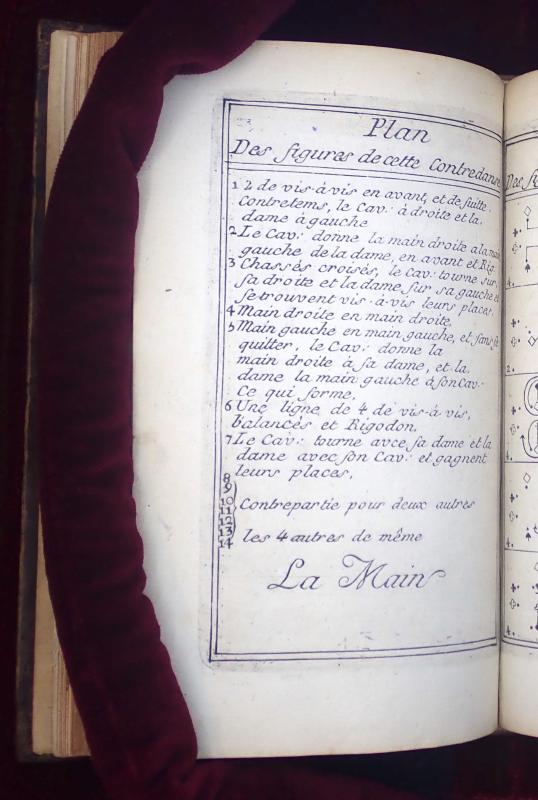 Plan
Des figures de cette Contredanse
1 2 de vis-à-vis en avant, et de suite
contretems, le Cav: à droite et la
dame à gauche
2 Le Cav: donne la main droite a la main
gauche de la dame, en avant et Rig:
3 Chassés croisés, le cav: tourne sur
sa droite et la dame sur sa gauche et
se trouvent vis-à-vis leurs places,
4 Main droite en main droite,
5 Main gauche en main gauche, et, sans se
quitter, le Cav: donne la
main droite à sa dame, et la
dame la main gauche à son Cav:
Ce qui forme,
6 Une ligne de 4 de vis-à vis,
balancés et Rigodon.
7 Le Cav: tourne avce sa dame et la
dame avec son Cav: et gagnent
leurs places,
8
9
10 Contrepartie pour deux autres
11
12
13 les 4 autres de même
14
La Main